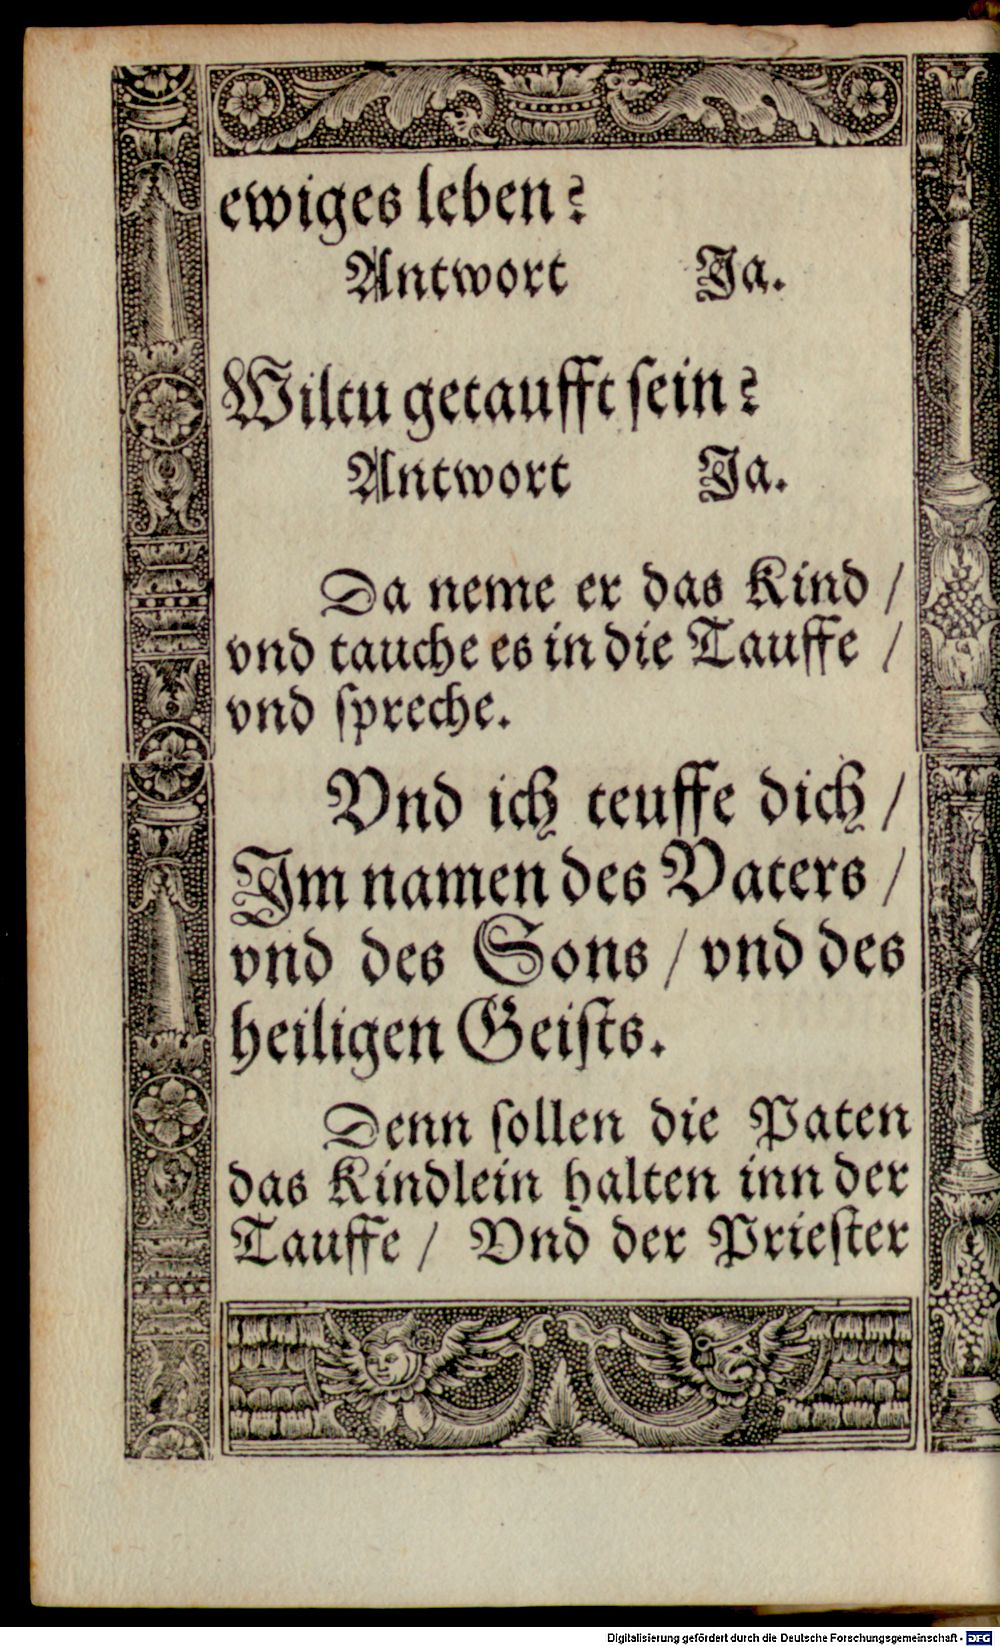 ewiges leben?
Antwort Ja.
Wiltu getaufft sein?
Antwort Ja.
Da neme er das Kind /
vnd tauche es in die Tauffe /
vnd spreche.
Vnd ich teuffe dich /
Im namen des Vaters /
vnd des Sons / vnd des
heiligen Geists.
Denn sollen die Paten
das Kindlein halten inn der
Tauffe / Vnd der Priester
Digitalisierung gefördert durch die Deutsche Forschungsgemeinschaft - DFG